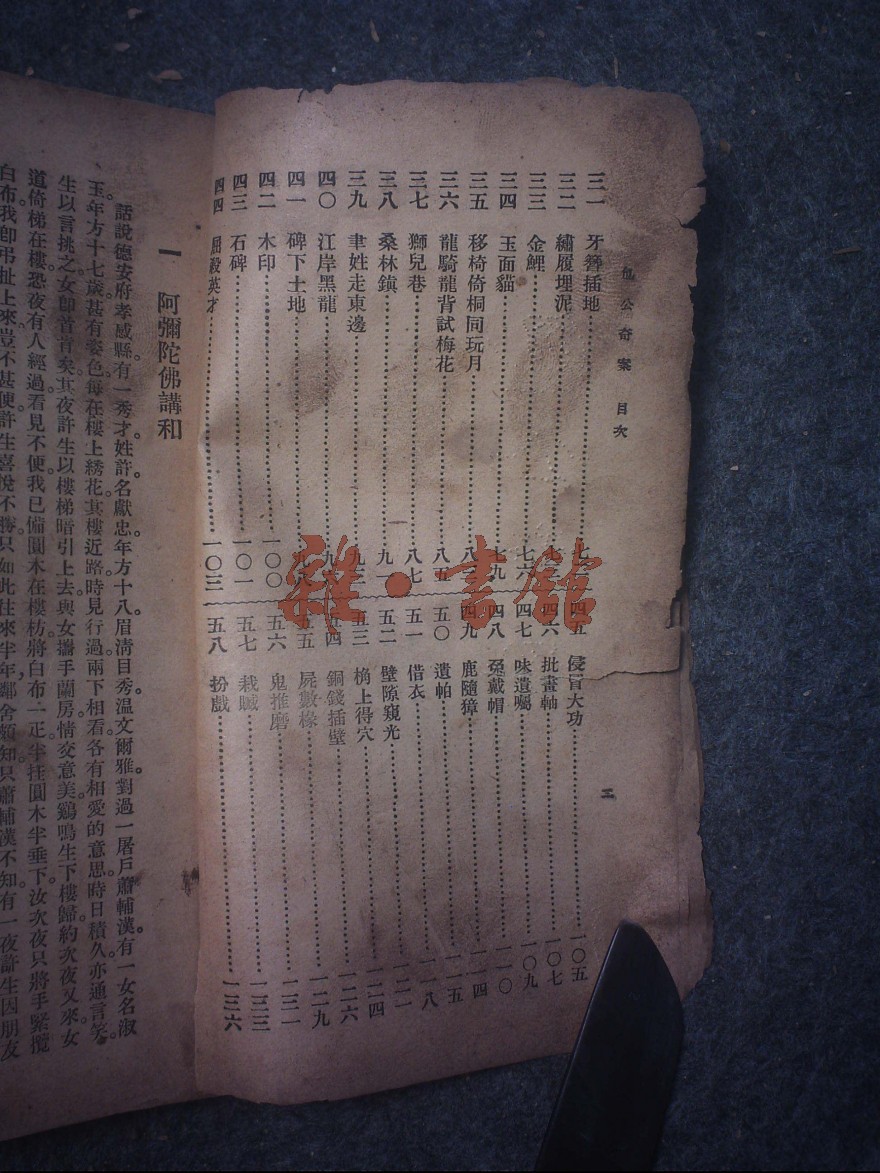 包公奇案 目次
二
三一 牙簪插地
三二 繡履埋泥
三三 金鯉 七六
三四 玉面貓 七九
三五 移椅倚桐同玩月
三六 龍騎龍背試梅花 八五
三七 獅兒巷 八七
三八 桑林鎮 九一
三九 聿姓走東邊
四〇 江岸黑龍
四一 碑下土地
四二 木印 一〇〇
四三 石碑 一〇一
四四 屈殺英才 一〇三
四五 侵冒大功 一〇五
四六 批畫軸 一〇七
四七 味遺囑 一〇九
四八 兔戴帽 一一〇
四九 鹿隨獐 一一四
五〇 遺帕 一一五
五一 借衣 一一八
五二 壁隙窺光 一二一
五三 桷上得穴 一二四
五四 銅錢插壁 一二六
五五 屍數椽 一二九
五六 鬼推磨 一三一
五七 栽贓 一三三
五八 扮戲 一三六
雜·書館
一 阿彌陀佛講和
話說德安府孝感縣有一秀才。姓許。名獻忠。年方十八。眉清目秀。溫文爾雅。對過一屠戶蕭輔漢。有一女名淑
玉。年方十七歲。甚有姿色。每在樓上綉花。其樓近路。時見行過。兩下相看。各有相愛的意思。時日積久。亦通言笑。
生以言挑之。女卽首肯矣。其夜許生以樓梯暗引上去。與女攜手蘭房。情交意美。鷄鳴。生下樓歸。約次夜又來。女
道。倚梯在樓。恐夜有人經過看見不便。我已備圓木在樓枋。將白布一疋。半挂圓木。半垂下。汝次夜只將手緊攬
白布。我卽弔扯上來。豈不甚便。許生喜悅不勝。只如此往來半年。鄰舍頗知。只蕭輔漢不知。有一夜許生因朋友